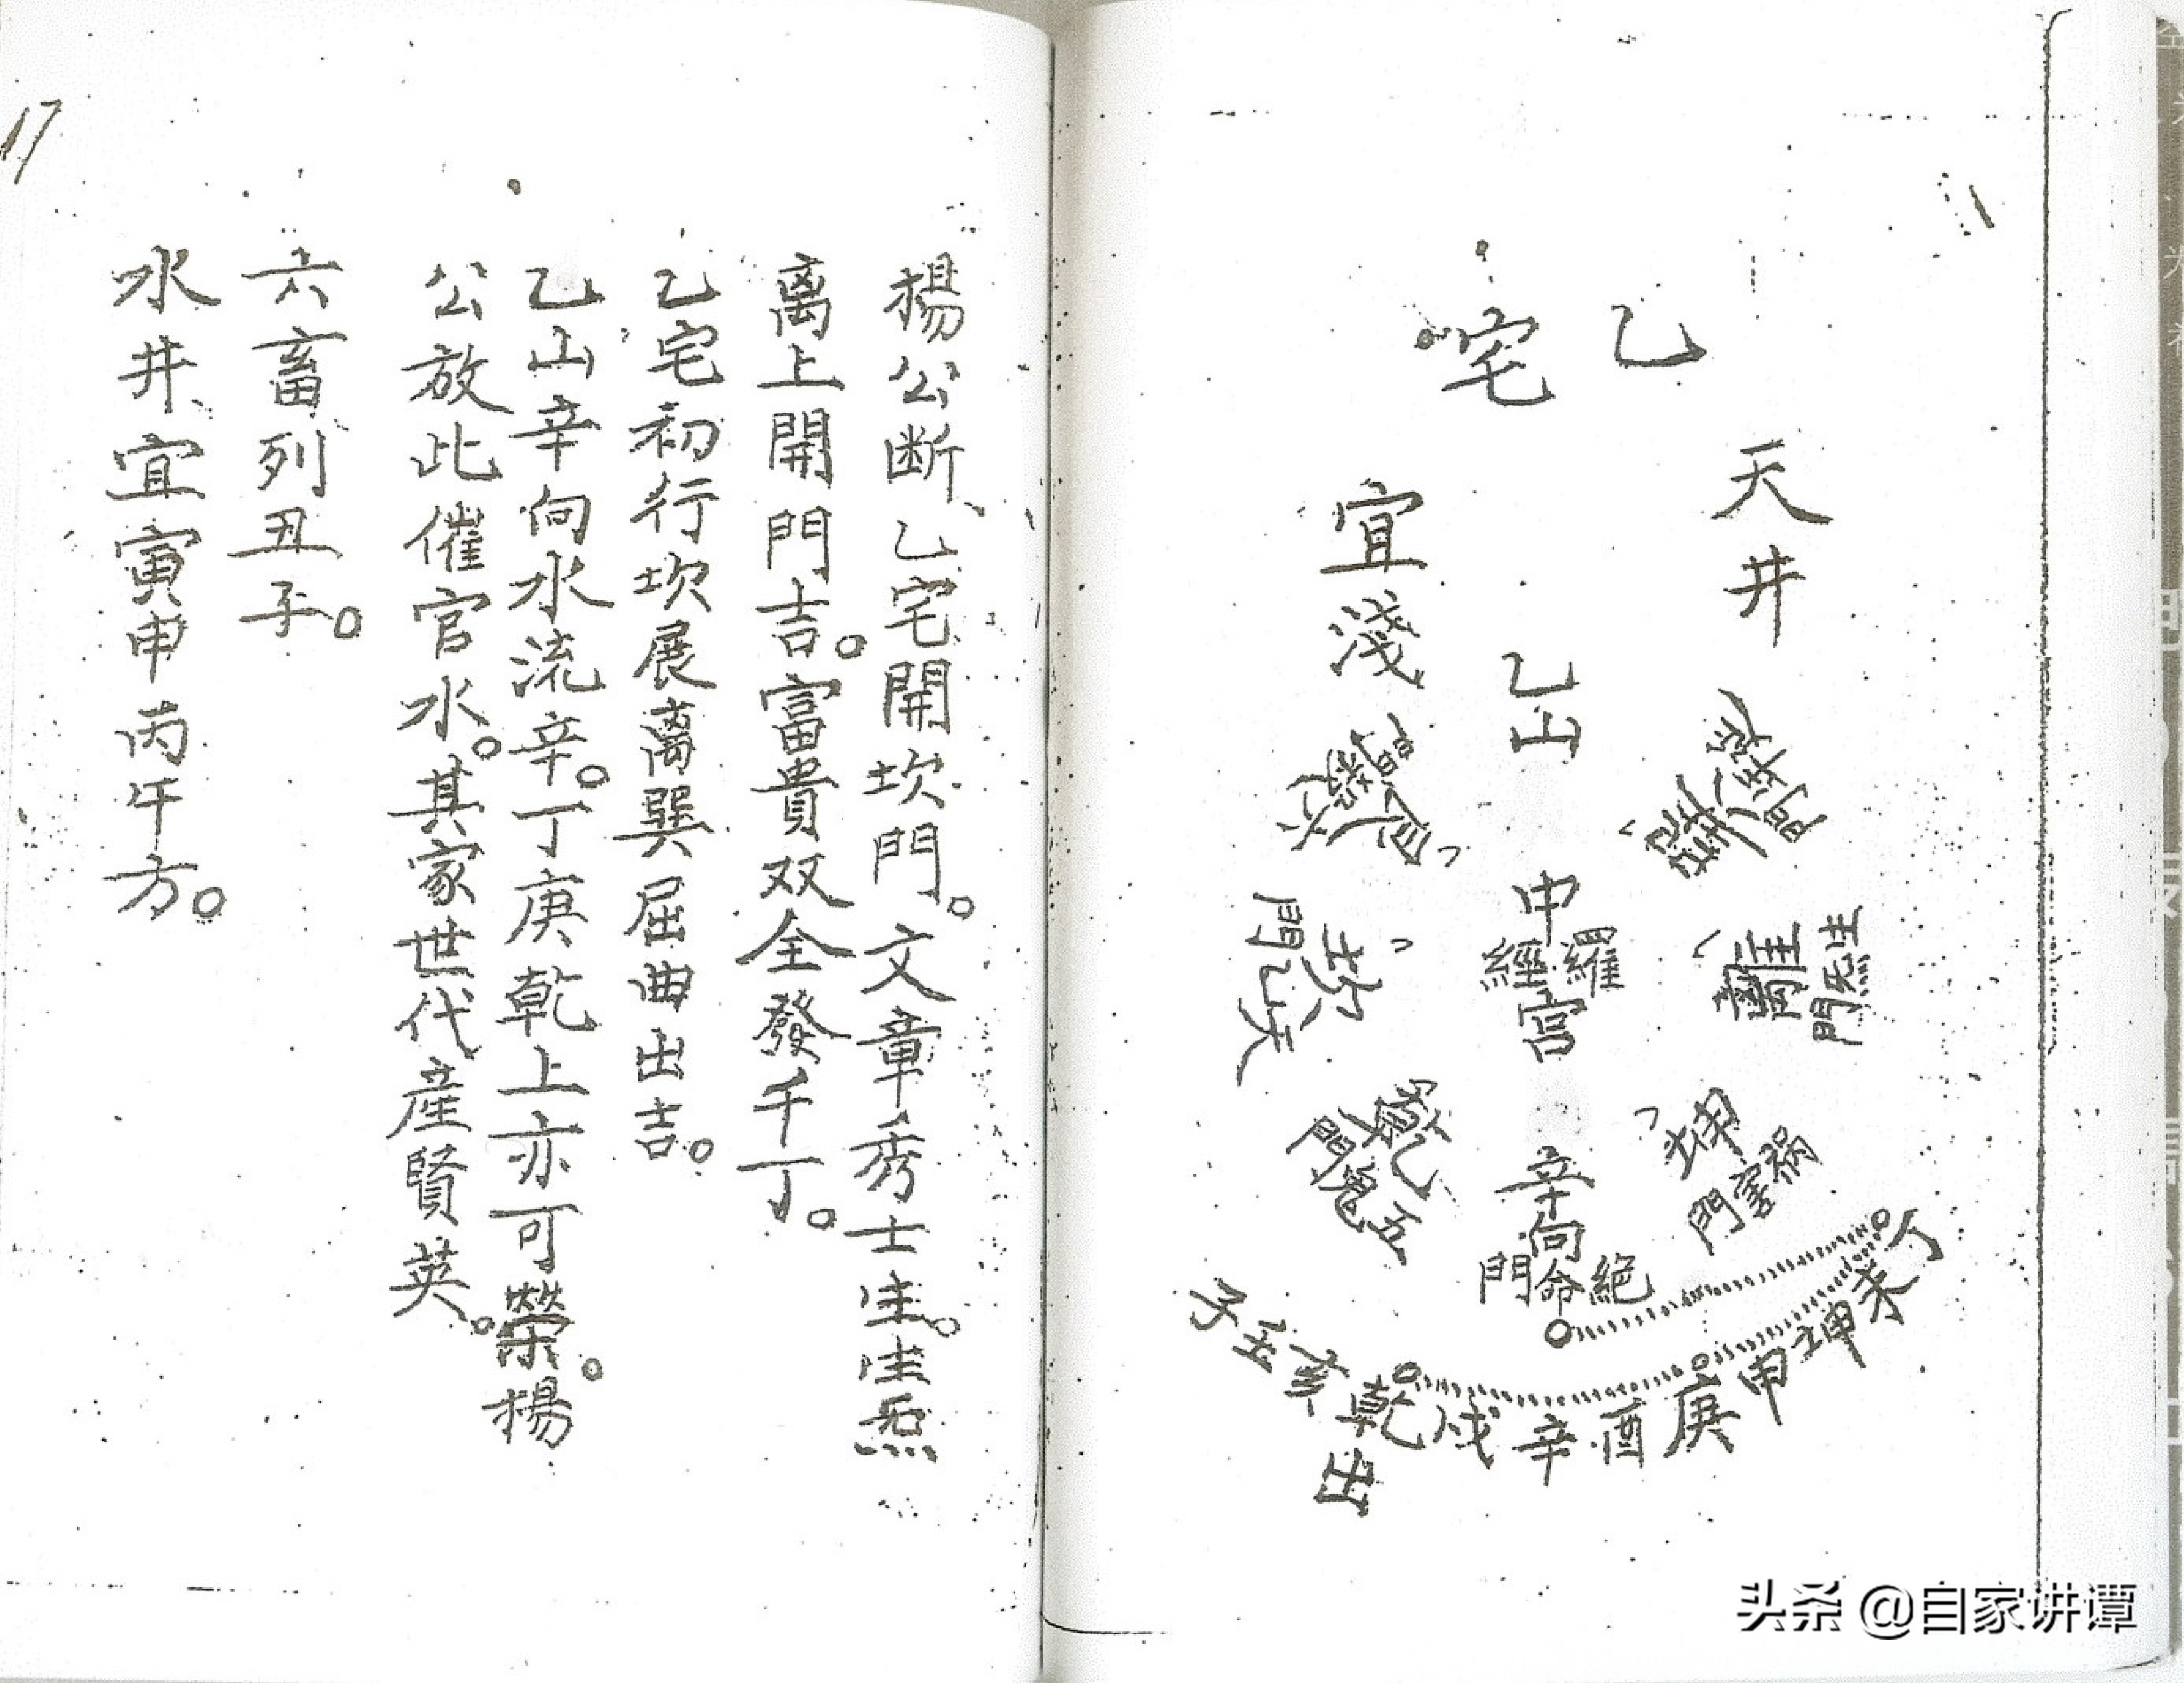 乙宅
天井
宜淺
乙山
中宮
羅經
巽
延年門
離
生炁門
坤
禍害門
辛向
絕命門
乾
五鬼門
坎
門
艮
丁未坤申庚酉辛戌乾亥壬子
出
楊公断、乙宅開坎門。文章秀士生。生炁
离上開門吉。富貴双全發千丁。
乙宅初行坎展离巽屈曲出吉。
乙山辛向水流辛。丁庚乾上亦可榮。楊
公放此催官水。其家世代産賢英。
六畜列丑子。
水井宜寅申丙午方。
17
头条 @自家讲谭